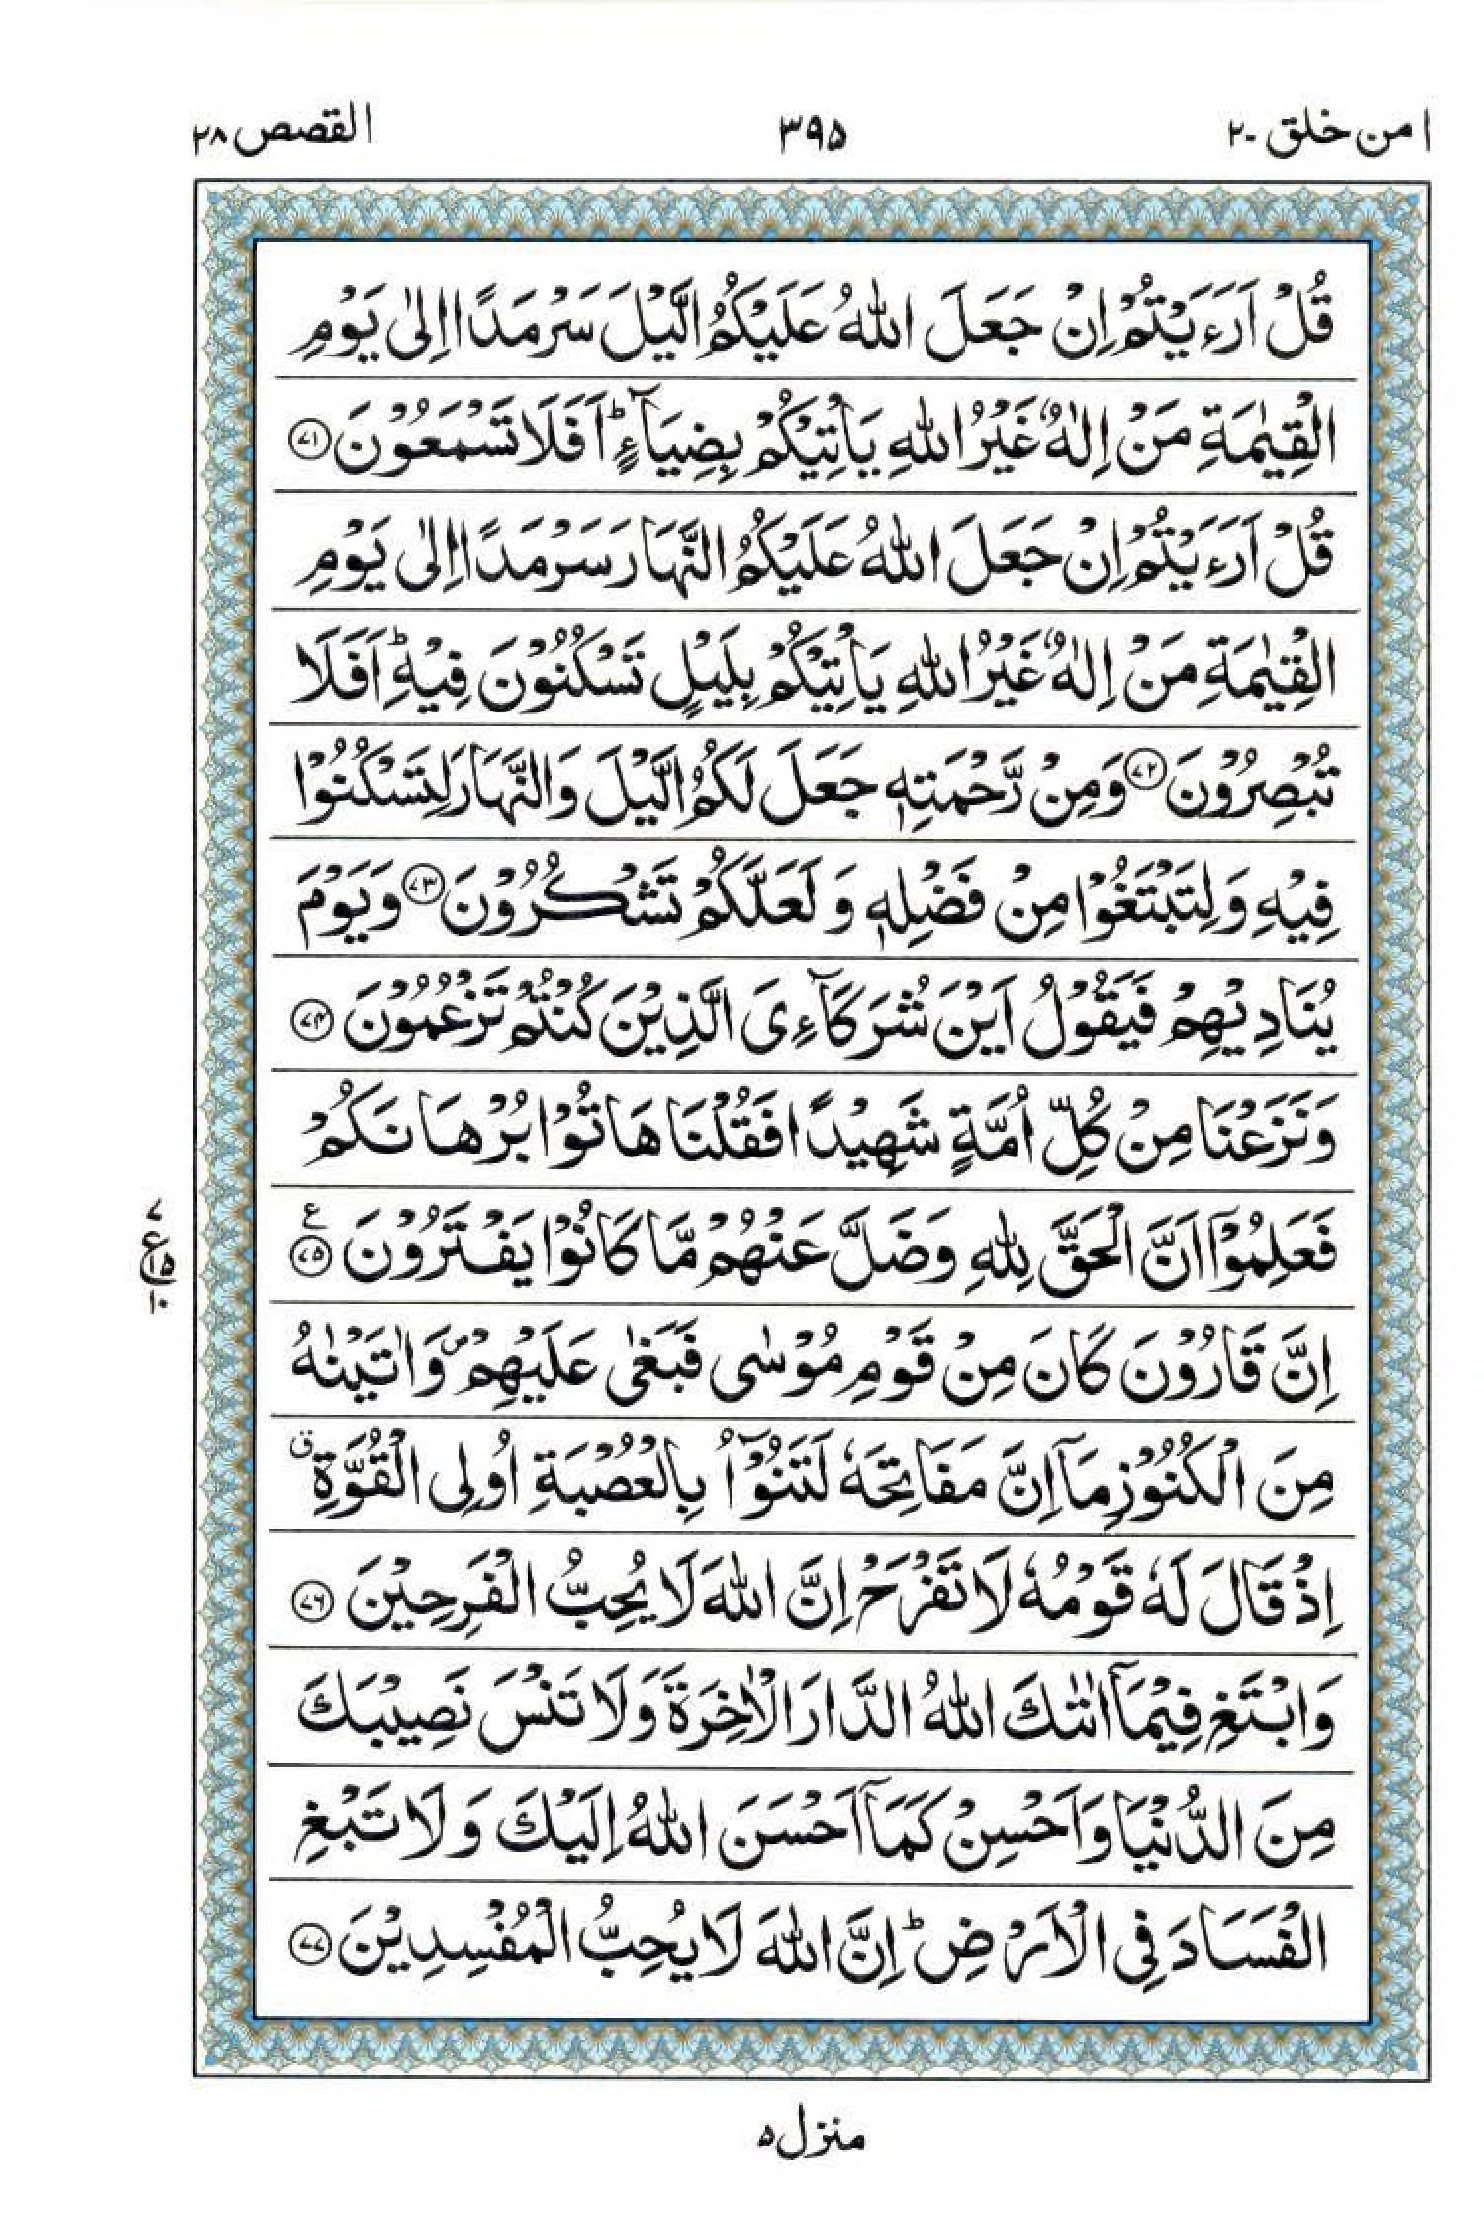 امن خلق ٢٠
٣٩٥
القصص ٢٨
قُلْ اَرَءَيْتُمْ اِنْ جَعَلَ اللّٰهُ عَلَيْكُمُ الَّيْلَ سَرْمَدًا اِلٰى يَوْمِ
الْقِيٰمَةِ مَنْ اِلٰهٌ غَيْرُ اللّٰهِ يَاْتِيْكُمْ بِضِيَآءٍ ؕ اَفَلَا تَسْمَعُوْنَ ﴿۷۱﴾
قُلْ اَرَءَيْتُمْ اِنْ جَعَلَ اللّٰهُ عَلَيْكُمُ النَّهَارَ سَرْمَدًا اِلٰى يَوْمِ
الْقِيٰمَةِ مَنْ اِلٰهٌ غَيْرُ اللّٰهِ يَاْتِيْكُمْ بِلَيْلٍ تَسْكُنُوْنَ فِيْهِ ؕ اَفَلَا
تُبْصِرُوْنَ ﴿۷۲﴾ وَمِنْ رَّحْمَتِهٖ جَعَلَ لَكُمُ الَّيْلَ وَالنَّهَارَ لِتَسْكُنُوْا
فِيْهِ وَلِتَبْتَغُوْا مِنْ فَضْلِهٖ وَ لَعَلَّكُمْ تَشْكُرُوْنَ ﴿۷۳﴾ وَيَوْمَ
يُنَادِيْهِمْ فَيَقُوْلُ اَيْنَ شُرَكَآءِىَ الَّذِيْنَ كُنْتُمْ تَزْعُمُوْنَ ﴿۷۴﴾
وَنَزَعْنَا مِنْ كُلِّ اُمَّةٍ شَهِيْدًا فَقُلْنَا هَاتُوْا بُرْهَانَكُمْ
فَعَلِمُوْۤا اَنَّ الْحَقَّ لِلّٰهِ وَضَلَّ عَنْهُمْ مَّا كَانُوْا يَفْتَرُوْنَ ﴿۷۵﴾ ع
٧
ع
١٥
١٠
اِنَّ قَارُوْنَ كَانَ مِنْ قَوْمِ مُوْسٰى فَبَغٰى عَلَيْهِمْ ۪ وَاٰتَيْنٰهُ
مِنَ الْكُنُوْزِ مَاۤ اِنَّ مَفَاتِحَهٗ لَتَنُوْٓاُ بِالْعُصْبَةِ اُولِى الْقُوَّةِ ق
اِذْ قَالَ لَهٗ قَوْمُهٗ لَا تَفْرَحْ اِنَّ اللّٰهَ لَا يُحِبُّ الْفَرِحِيْنَ ﴿۷۶﴾
وَابْتَغِ فِيْمَاۤ اٰتٰىكَ اللّٰهُ الدَّارَ الْاٰخِرَةَ وَلَا تَنْسَ نَصِيْبَكَ
مِنَ الدُّنْيَا وَاَحْسِنْ كَمَاۤ اَحْسَنَ اللّٰهُ اِلَيْكَ وَلَا تَبْغِ
الْفَسَادَ فِى الْاَرْضِ ؕ اِنَّ اللّٰهَ لَا يُحِبُّ الْمُفْسِدِيْنَ ﴿۷۷﴾
منزل ٥